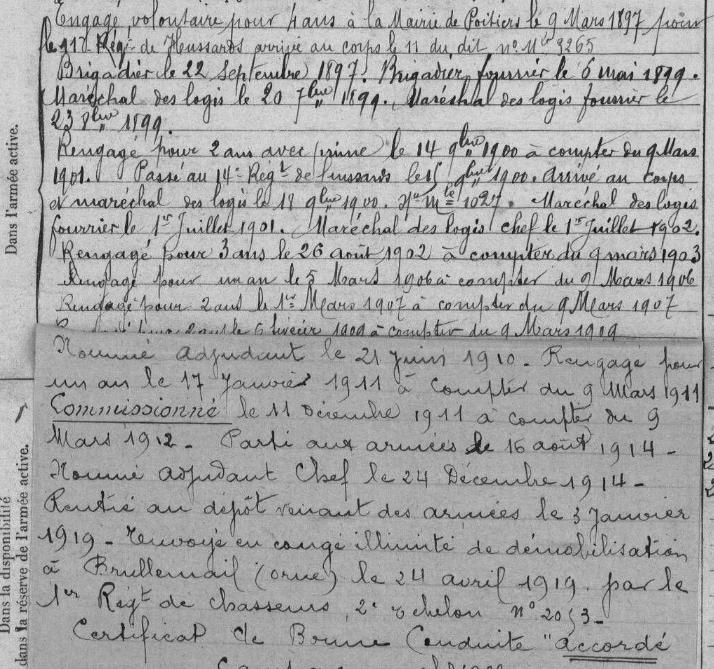 Engagé volontaire pour 4 ans à la Mairie de Poitiers le 9 Mars 1897 pour
le Régt de Hussards arrivé au corps le 11 du dit n° Mle 3265
Brigadier le 22 Septembre 1897. Brigadier fourrier le 6 mai 1899.
Maréchal des logis le 20 7bre 1899. Maréchal des logis fourrier le
23 8bre 1899.
Rengagé pour 2 ans avec prime le 14 9bre 1900 à compter du 9 Mars
1901. Passé au 14e Régt de Hussards le 9bre 1900. Arrivé au corps
et maréchal des logis le 18 9bre 1900. Mle 1027. Maréchal des logis
fourrier le 1er Juillet 1901. Maréchal des logis chef le 1er Juillet 1902.
Rengagé pour 3 ans le 26 août 1902 à compter du 9 mars 1903
Rengagé pour un an le 5 Mars 1906 à compter du 9 Mars 1906
Rengagé pour 2 ans le 1er Mars 1907 à compter du 9 Mars 1907
le 6 février 1909 à compter du 9 Mars 1909
Nommé adjudant le 21 Juin 1910 - Rengagé pour
un an le 17 Janvier 1911 à compter du 9 Mars 1911
Commissionné le 11 Décembre 1911 à compter du 9
Mars 1912 - Parti aux armées le 16 août 1914 -
Nommé adjudant Chef le 24 Décembre 1914 -
Rentré au dépôt venant des armées le 3 Janvier
1919 - Renvoyé en congé illimité de démobilisation
à Brullemail (orne) le 24 avril 1919. par le
1er Régt de chasseurs, 2e échelon n° 2053 -
Certificat de Bonne Conduite "accordé
Dans l'armée active.
Dans la disponibilité
dans la réserve de l'armée active.